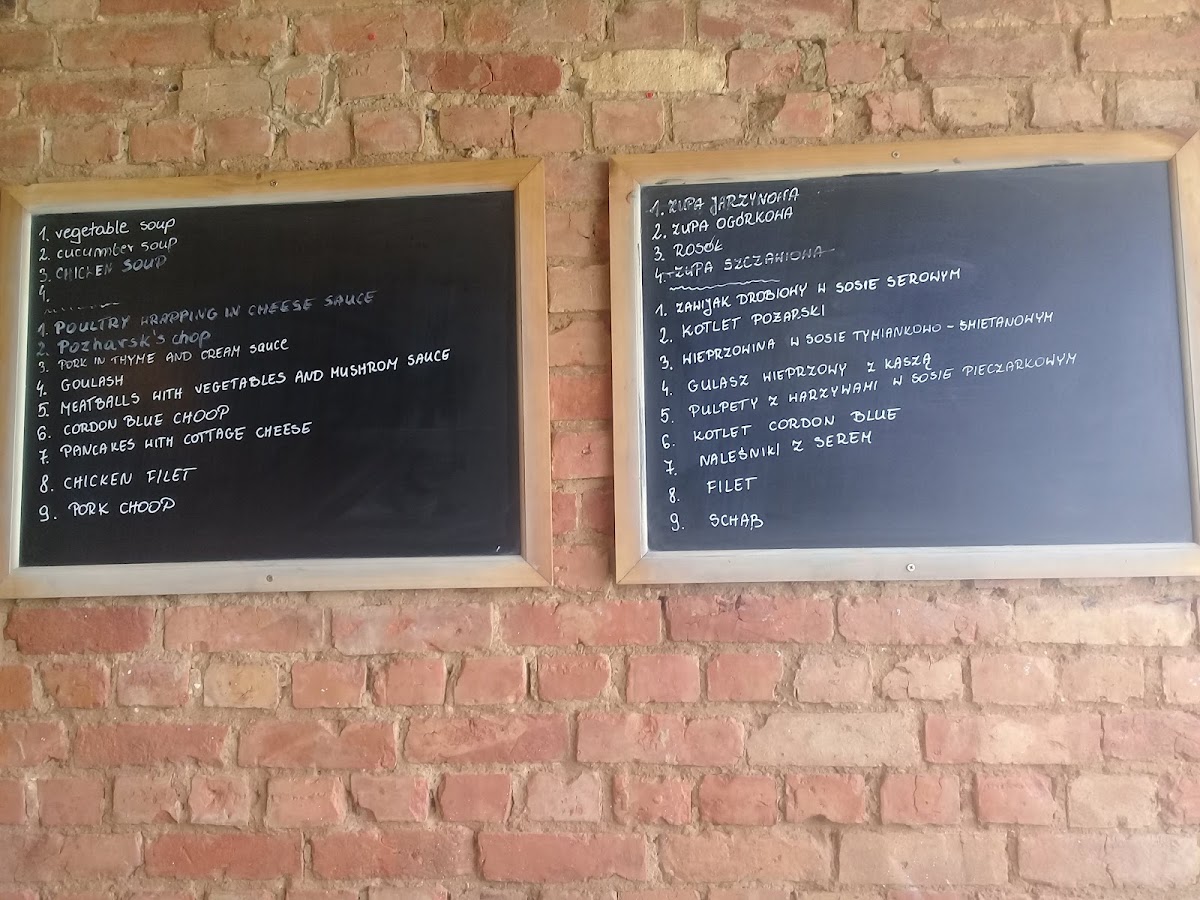 1. vegetable soup
2. cucumber soup
3. CHICKEN SOUP
4.
1. POULTRY WRAPPING IN CHEESE SAUCE
2. Pozharsk's chop
3. PORK IN THYME AND CREAM sauce
4. GOULASH
5. MEATBALLS WITH VEGETABLES AND MUSHROM SAUCE
6. CORDON BLUE CHOOP
7. PANCAKES WITH COTTAGE CHEESE
8. CHICKEN FILET
9. PORK CHOOP
1. ZUPA JARZYNOWA
2. ZUPA OGÓRKOWA
3. ROSÓŁ
4. ZUPA SZCZAWIOWA
1. ZAWIJAK DROBIOWY W SOSIE SEROWYM
2. KOTLET POŻARSKI
3. WIEPRZOWINA W SOSIE TYMIANKOWO - ŚMIETANOWYM
4. GULASZ WIEPRZOWY Z KASZĄ
5. PULPETY Z WARZYWAMI W SOSIE PIECZARKOWYM
6. KOTLET CORDON BLUE
7. NALEŚNIKI Z SEREM
8. FILET
9. SCHAB